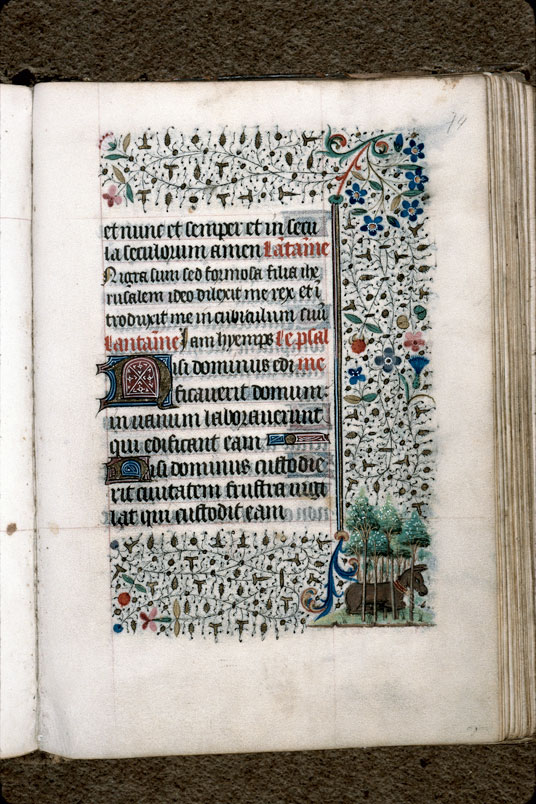 74
et nunc et semper et in secu
la seculorum amen Lantaine
Nigra sum sed formosa filia ihe
rusalem ideo dilexit me rex et i
troduxit me in cubiculum suu
Lantaine Iam hyemps Le psal
Nisi dominus edi me
ficauerit domum
in uanum laborauerunt
qui edificant eam
Nisi dominus custodie
rit ciuitatem frustra uigi
lat qui custodit eam